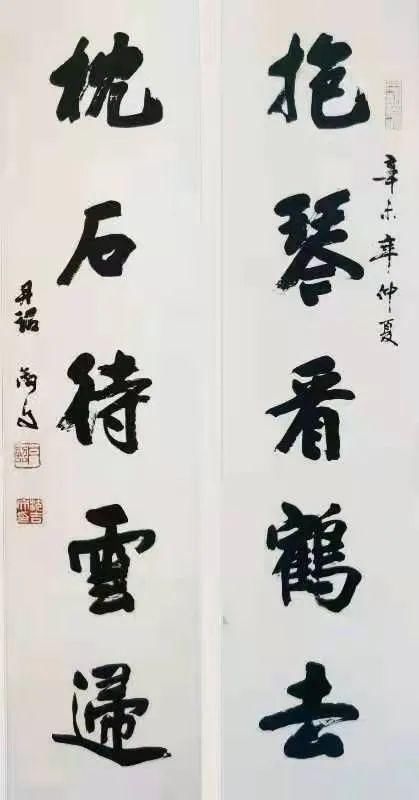 抱琴看鶴去
辛未年仲夏
枕石待雲歸